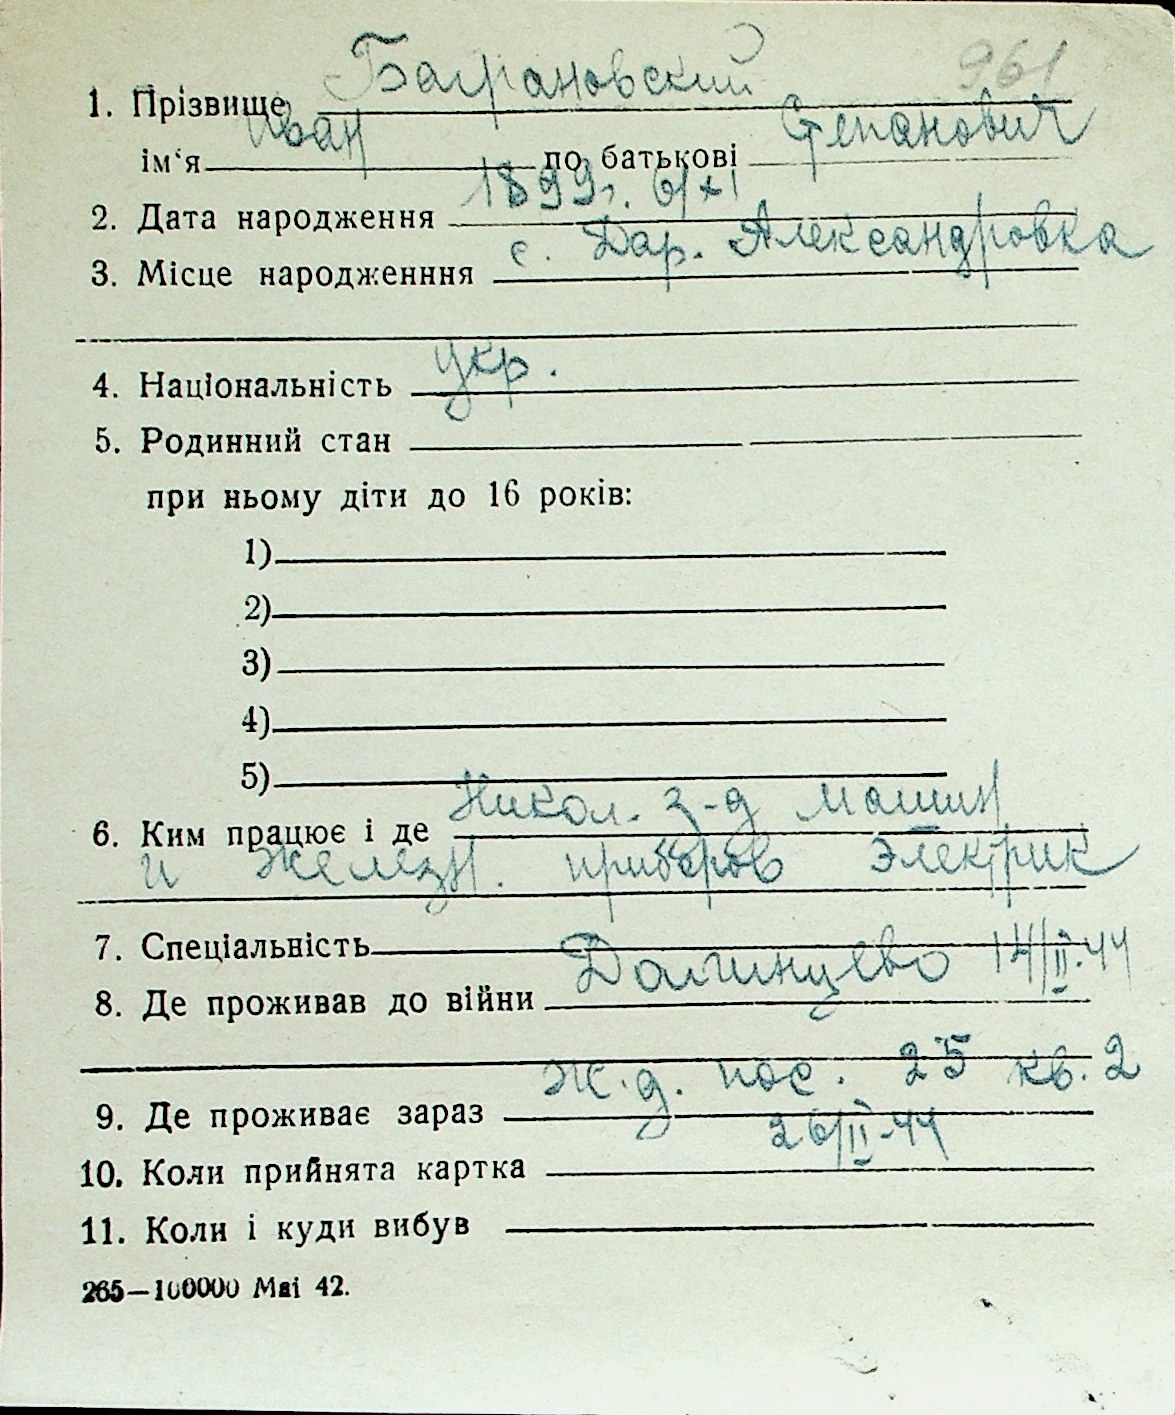 961
1. Прізвище Баграновский
ім‘я Иван по батькові Степанович
2. Дата народження 1899г. 6/XI
3. Місце народженння с. Дар. Александровка
4. Національність укр.
5. Родинний стан
при ньому діти до 16 років:
1)
2)
3)
4)
5)
6. Ким працює і де Никол. з-д машин
и железн. приборов электрик
7. Спеціальність
8. Де проживав до війни Долгинцево 14/II-44
9. Де проживає зараз ж.д. пос. 25 кв. 2
10. Коли прийнята картка 26/II-44
11. Коли і куди вибув
265—100000 Mai 42.